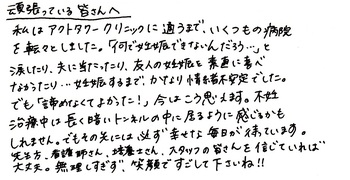 頑張っている皆さんへ
私はアクトタワークリニックに通うまで、いくつもの病院
を転々としました。「何で妊娠できないんだろう…」と
涙したり、夫に当たったり、友人の妊娠を素直に喜べ
なかったり…妊娠するまで、かなり情緒不安定でした。
でも「諦めなくてよかった！」今はこう思えます。不妊
治療中は長く暗いトンネルの中に居るように感じるかも
しれません。でもその先には必ず幸せな毎日が待っています。
先生方、看護師さん、培養士さん、スタッフの皆さんを信じていれば
大丈夫。無理しすぎず、笑顔ですごして下さいね!!